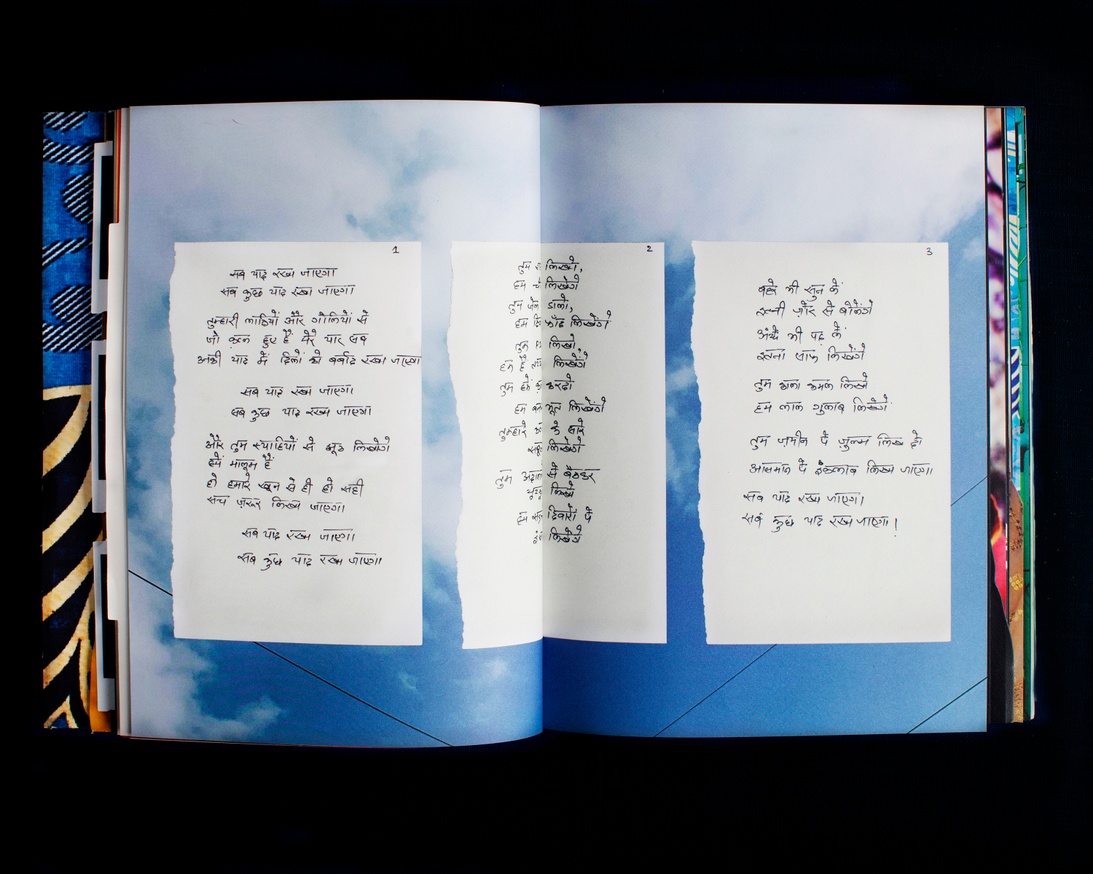 1
सब याद रखा जाएगा
सब कुछ याद रखा जाएगा
तुम्हारी लाठियों और गोलियों से
जो कत्ल हुए हैं मेरे यार सब
उनकी याद में दिलों को बर्बाद रखा जाएगा
सब याद रखा जाएगा
सब कुछ याद रखा जाएगा
और तुम स्याहियों से झूठ लिखोगे
हमें मालूम है
हो हमारे खून से ही हो सही
सच ज़रूर लिखा जाएगा
सब याद रखा जाएगा
सब कुछ याद रखा जाएगा
2
तुम लिखो,
हम लिखेंगे
तुम जेल डालो,
हम लिखेंगे
तुम लिखो
हम हैं लिखेंगे
तुम हमें करदो
हम लिखेंगे
तुम्हारे के सारे
लिखेंगे
तुम से बैठकर
लिखो
हम दिवारों पे
लिखेंगे
3
बहरे भी सुन लें
इतनी ज़ोर से बोलेंगे
अंधे भी पढ़ लें
इतना साफ़ लिखेंगे
तुम काला कमल लिखो
हम लाल गुलाब लिखेंगे
तुम जमीन पे जुल्म लिख दो
आसमान पे इंकलाब लिखा जाएगा
सब याद रखा जाएगा
सब कुछ याद रखा जाएगा!